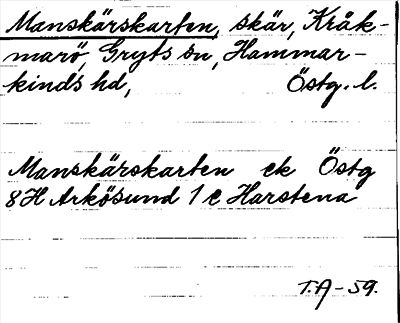 Manskärskarten, skär, Kråk-
marö, Gryts sn, Hammar-
kinds hd, Östg. l.
Manskärskarten ek Östg
8H Arkösund 1 e Harstena
T.A-59.